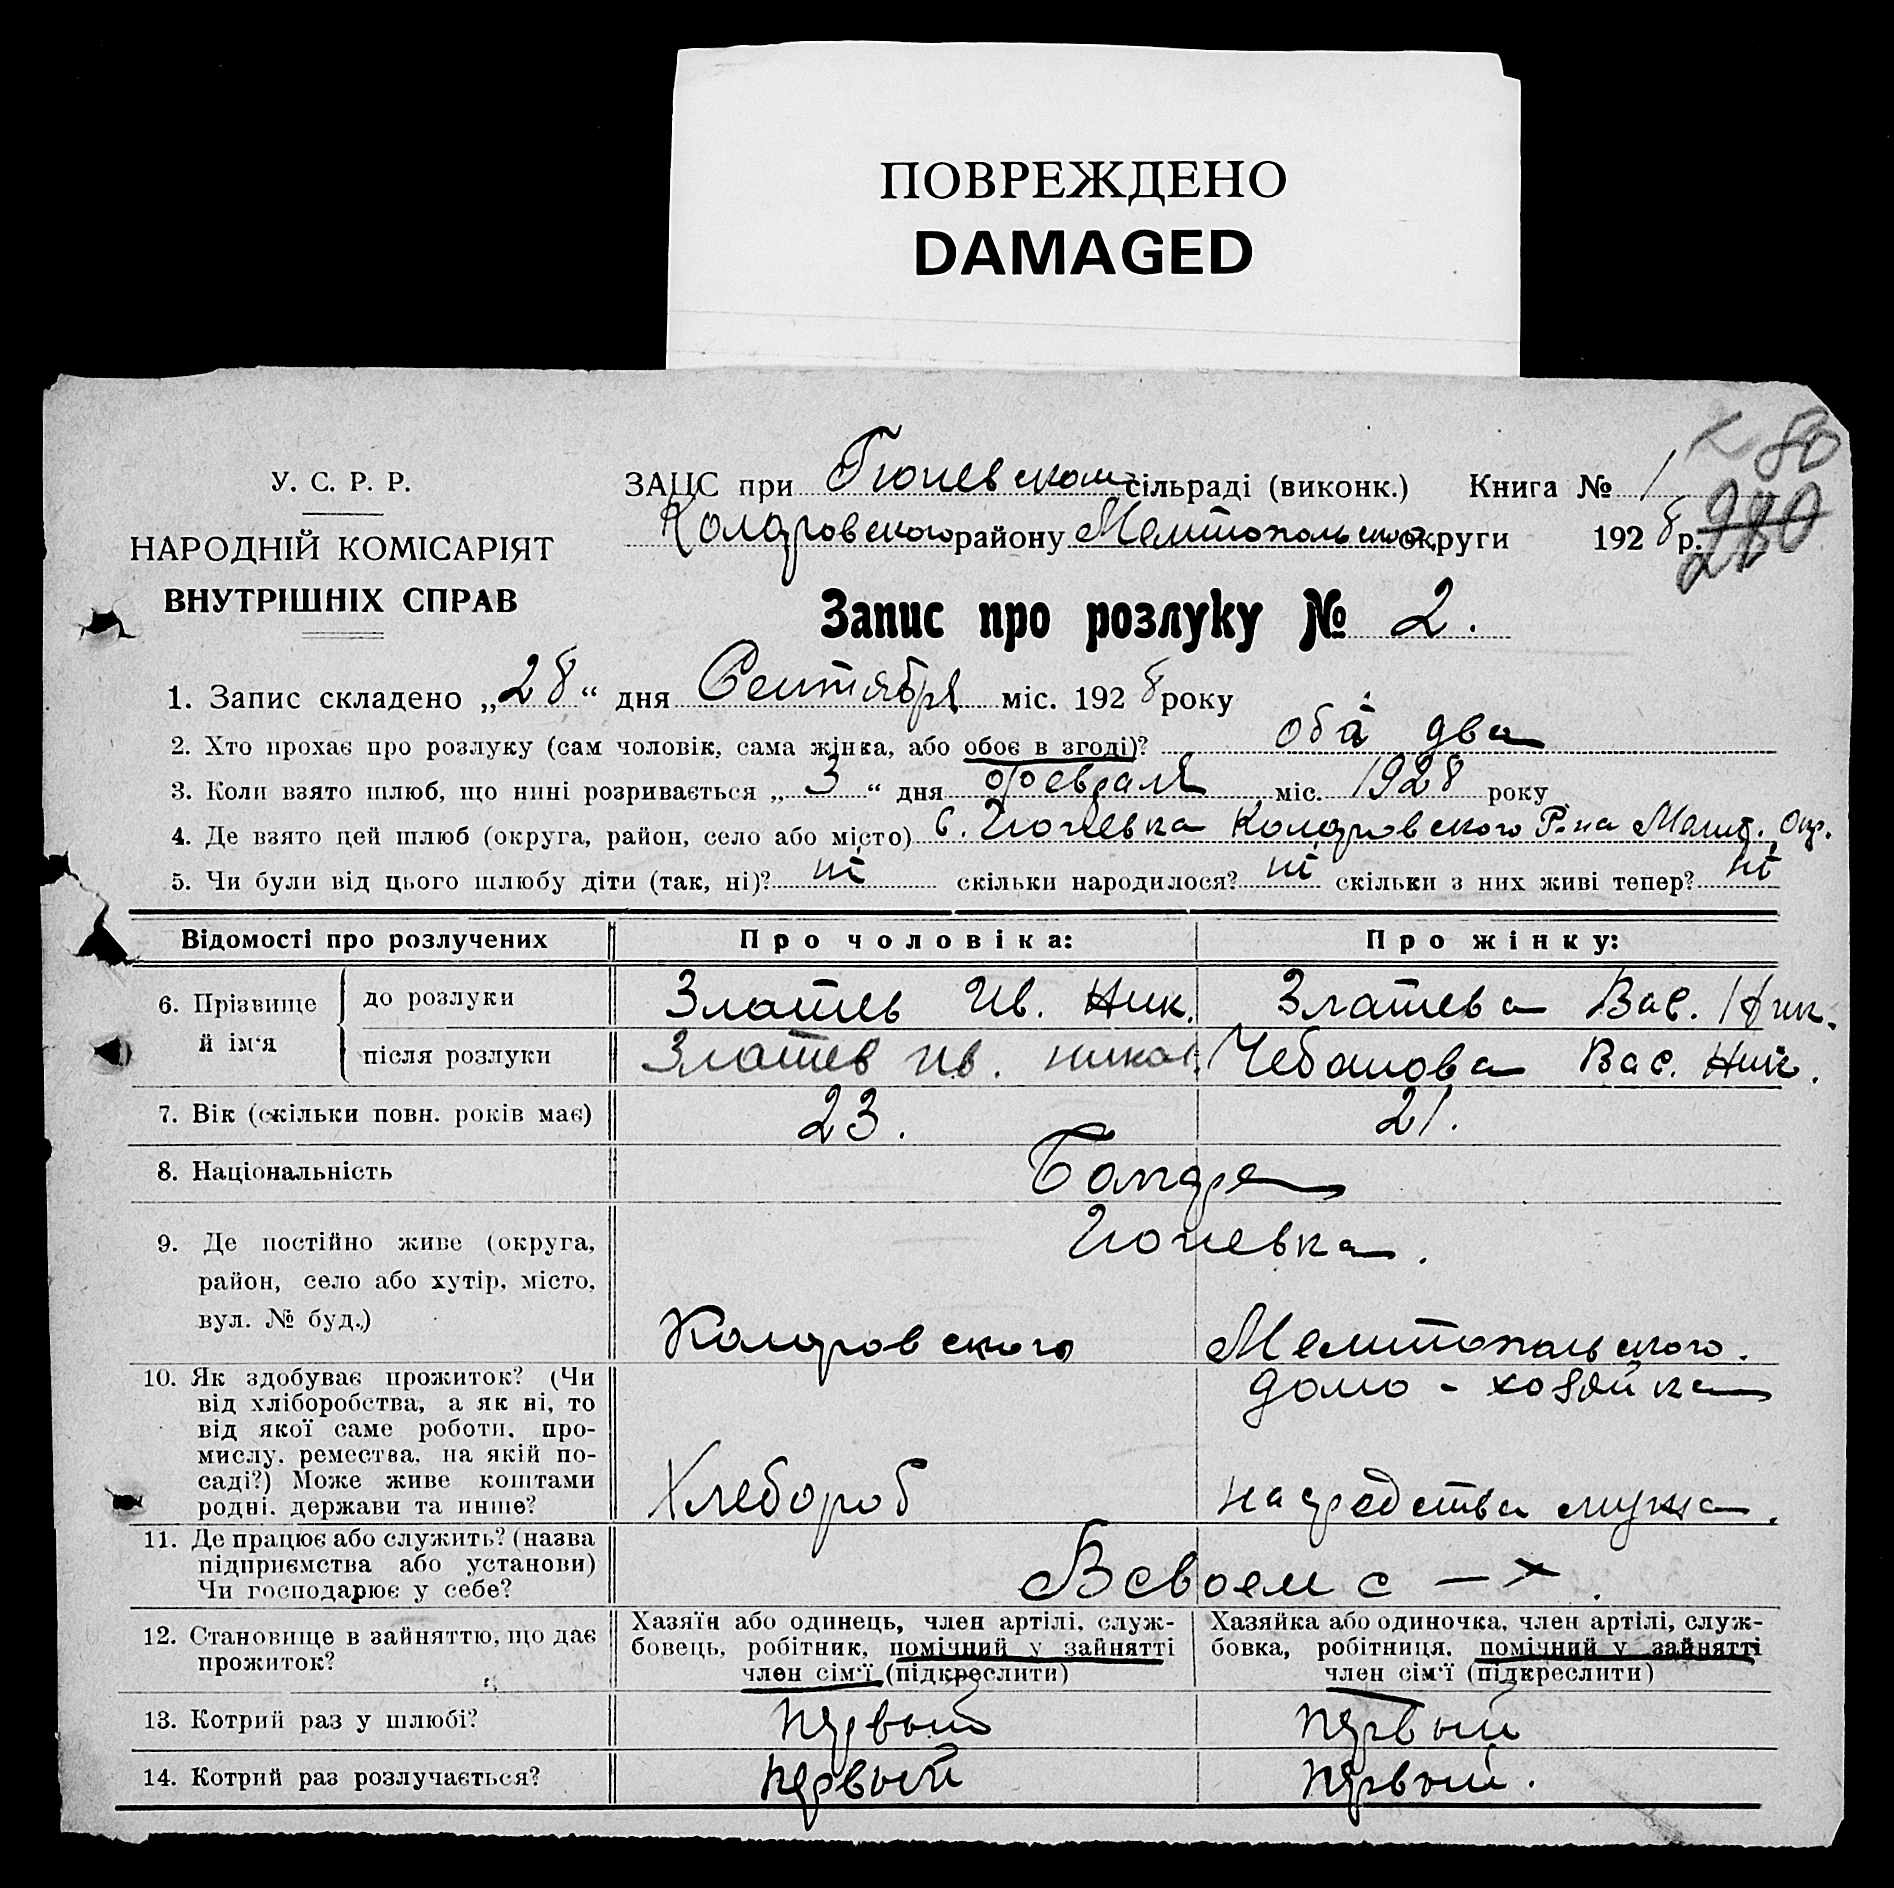 ПОВРЕЖДЕНО
DAMAGED
80
У. С. Р. Р.
НАРОДНІЙ КОМІСАРІЯТ
ВНУТРІШНІХ СПРАВ
ЗАЦС при Гюневском сільраді (виконк.) Книга № 1
280
Коларовского району Мелитопольского округи 1928 р.
Запис про розлуку № 2.
1. Запис складено „28“ дня Сентября міс. 1928 року
2. Хто прохає про розлуку (сам чоловік, сама жінка, або обоє в згоді)? оба два
3. Коли взято шлюб, що нині розривається „3“ дня февраля міс. 1928 року
4. Де взято цей шлюб (округа, район, село або місто) с. Гюневка Коларовского Р-на Мелит. Окр.
5. Чи були від цього шлюбу діти (так, ні)? ні скільки народилося? ні скільки з них живі тепер? ні
Відомості про розлучених Про чоловіка: Про жінку:
6. Прізвище й ім'я
до розлуки Златев Ив. Ник. Златева Вас. Ник.
після розлуки Златев Ив. никол. Чебанова Вас. Ник.
7. Вік (скільки повн. років має) 23. 21.
8. Національність Болгаре
9. Де постійно живе (округа, район, село або хутір, місто, вул. № буд.)
Гюневка.
Коларовского Мелитопольского.
10. Як здобуває прожиток? (Чи
від хліборобства, а як ні, то
від якої саме роботи, про-
мислу, ремества, на якій по-
саді?) Може живе коштами
родні, держави та инше?
домо-хозяйка
Хлебороб на средства мужа.
11. Де працює або служить? (назва
підприємства або установи)
Чи господарює у себе?
В своем с-х.
12. Становище в зайняттю, що дає
прожиток?
Хазяїн або одинець, член артілі, служ-
бовець, робітник, помічний у зайнятті
член сім'ї (підкреслити)
Хазяйка або одиночка, член артілі, служ-
бовка, робітниця, помічний у зайнятті
член сім'ї (підкреслити)
13. Котрий раз у шлюбі? первый первый
14. Котрий раз розлучається? первый первый.